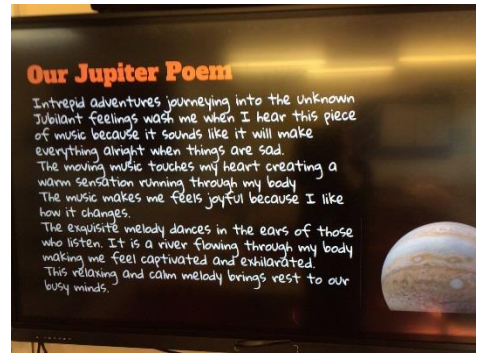 Our Jupiter Poem
Intrepid adventures journeying into the unknown
Jubilant feelings wash me when I hear this piece
of music because it sounds like it will make
everything alright when things are sad.
The moving music touches my heart creating a
warm sensation running through my body
The music makes me feels joyful because I like
how it changes.
The exquisite melody dances in the ears of those
who listen. It is a river flowing through my body
making me feel captivated and exhilarated.
This relaxing and calm melody brings rest to our
busy minds.